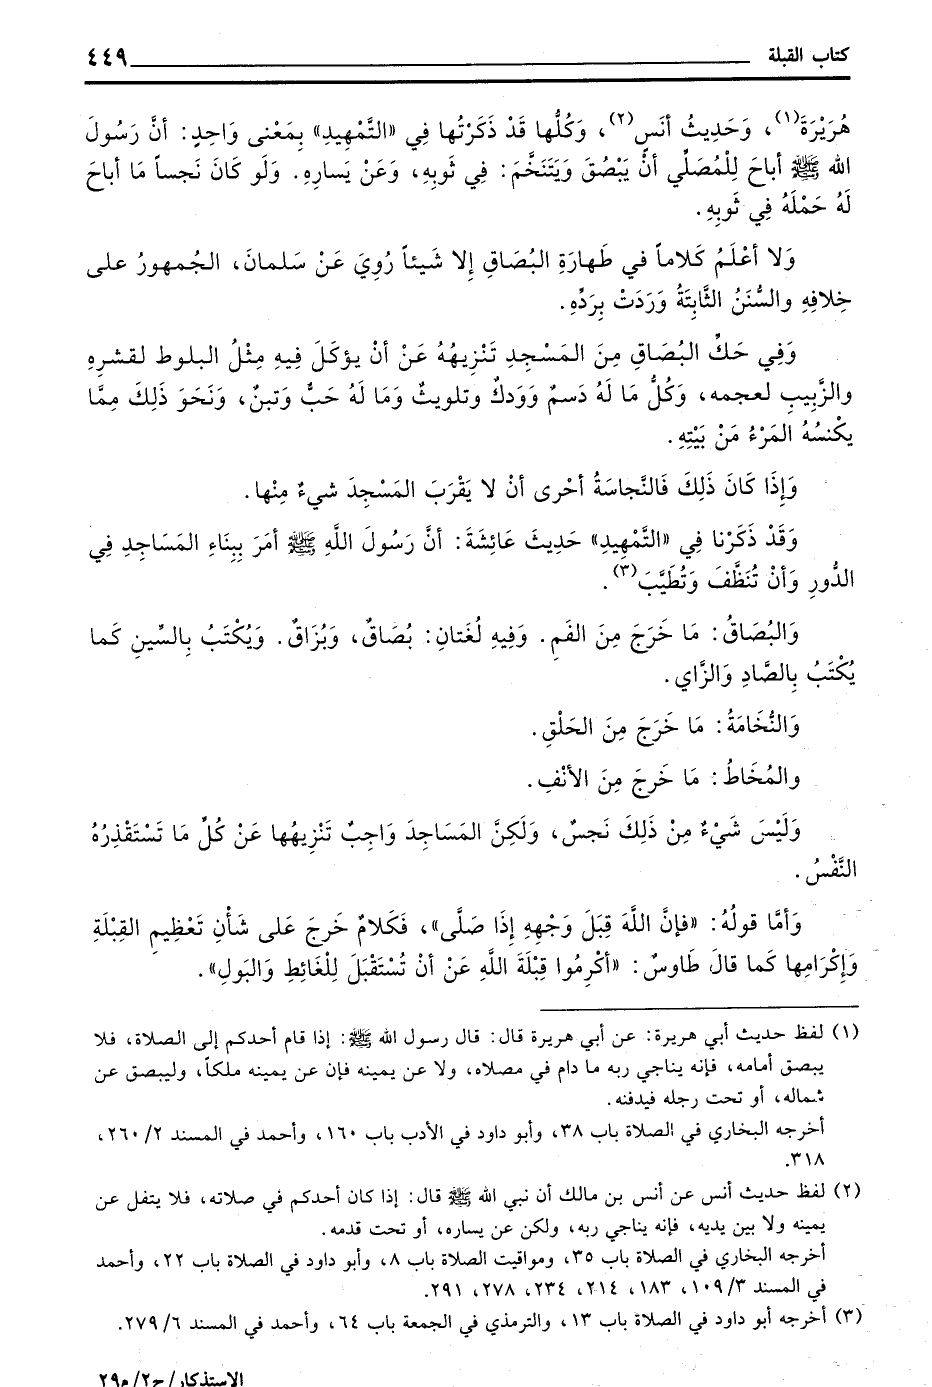 كتاب القبلة ٤٤٩
هُرَيْرَةَ(١)، وَحَدِيثُ أنَسٍ(٢)، وَكُلُّها قَدْ ذَكَرْتُها فِي «التَّمْهِيدِ» بِمَعْنى وَاحِدٍ: أنَّ رَسُولَ
الله ﷺ أباحَ لِلْمُصَلِّي أنْ يَبْصُقَ وَيَتَنَخَّمَ: فِي ثَوبِهِ، وَعَنْ يَسارِهِ. وَلَو كَانَ نَجساً مَا أباحَ
لَهُ حَمْلَهُ فِي ثَوبِهِ.
وَلا أعْلَمُ كَلاماً في طَهارَةِ البُصَاقِ إلا شَيئاً رُوِيَ عَنْ سَلمانَ، الجُمهورُ على
خِلافِهِ والسُّنَنُ الثَّابتَةُ وَرَدَتْ بِرَدِّهِ.
وَفِي حَكِّ البُصَاقِ مِنَ المَسْجِدِ تَنْزِيهُهُ عَنْ أنْ يؤكَلَ فِيهِ مِثْلُ البلوط لقشرِهِ
والزَّبِيبِ لعجمه، وَكُلُّ مَا لَهُ دَسمٌ وَوَدكٌ وتلويثٌ وَمَا لَهُ حَبٌّ وَتبنٌ، وَنَحوَ ذَلِكَ مِمَّا
يكْنسُهُ المَرْءُ مَنْ بَيْتِهِ.
وَإِذَا كَانَ ذَلِكَ فَالنَّجاسَةُ أحْرى أنْ لا يَقْرَبَ المَسْجِدَ شيءٌ مِنْها.
وَقَدْ ذَكَرْنا فِي «التَّمْهِيدِ» حَدِيثَ عَائِشَةَ: أنَّ رَسُولَ اللَّهِ ﷺ أمَرَ بِبِنَاءِ المَسَاجِدِ فِي
الدُّورِ وَأنْ تُنَظَّفَ وَتُطَيَّبَ(٣).
وَالبُصَاقُ: مَا خَرَجَ مِنَ الفَمِ. وَفِيهِ لُغَتانِ: بُصَاقٌ، وَبُزَاقٌ. وَيُكْتَبُ بِالسِّينِ كَما
يُكْتَبُ بِالصَّادِ وَالزَّاي.
وَالنُّخَامَةُ: مَا خَرَجَ مِنَ الحَلْقِ.
والمُخَاطُ: مَا خَرجَ مِنَ الأنْفِ.
وَلَيْسَ شَيْءٌ مِنْ ذَلِكَ نَجسٌ، وَلَكِنَّ المَسَاجِدَ وَاجِبٌ تَنْزِيهُها عَنْ كُلِّ مَا تَسْتَقْذِرُهُ
النَّفْسُ.
وَأمَّا قولُهُ: «فإنَّ اللَّهَ قِبَلَ وَجْهِهِ إذَا صَلَّى»، فَكَلامٌ خَرجَ عَلى شَأْنِ تَعْظِيمِ القِبْلَةِ
وَإِكْرَامِها كَما قالَ طَاوسٌ: «أكْرِمُوا قِبْلَةَ اللَّهِ عَنْ أنْ تُسْتَقْبَلَ لِلْغَائطِ وَالبَولِ».
(١) لفظ حديث أبي هريرة: عن أبي هريرة قال: قال رسول الله ﷺ: إذا قام أحدكم إلى الصلاة، فلا
يبصق أمامه، فإنه يناجي ربه ما دام في مصلاه، ولا عن يمينه فإن عن يمينه ملكاً، وليبصق عن
شماله، أو تحت رجله فيدفنه.
أخرجه البخاري في الصلاة باب ٣٨، وأبو داود في الأدب باب ١٦٠، وأحمد في المسند ٢/ ٢٦٠،
٣١٨.
(٢) لفظ حديث أنس عن أنس بن مالك أن نبي الله ﷺ قال: إذا كان أحدكم في صلاته، فلا يتفل عن
يمينه ولا بين يديه، فإنه يناجي ربه، ولكن عن يساره، أو تحت قدمه.
أخرجه البخاري في الصلاة باب ٣٥، ومواقيت الصلاة باب ٨، وأبو داود في الصلاة باب ٢٢، وأحمد
في المسند ٣/ ١٠٩، ١٨٣، ٢١٤، ٢٣٤، ٢٧٨، ٢٩١.
(٣) أخرجه أبو داود في الصلاة باب ١٣، والترمذي في الجمعة باب ٦٤، وأحمد في المسند ٦/ ٢٧٩.
الاستذكار/ ج٢/ م٢٩